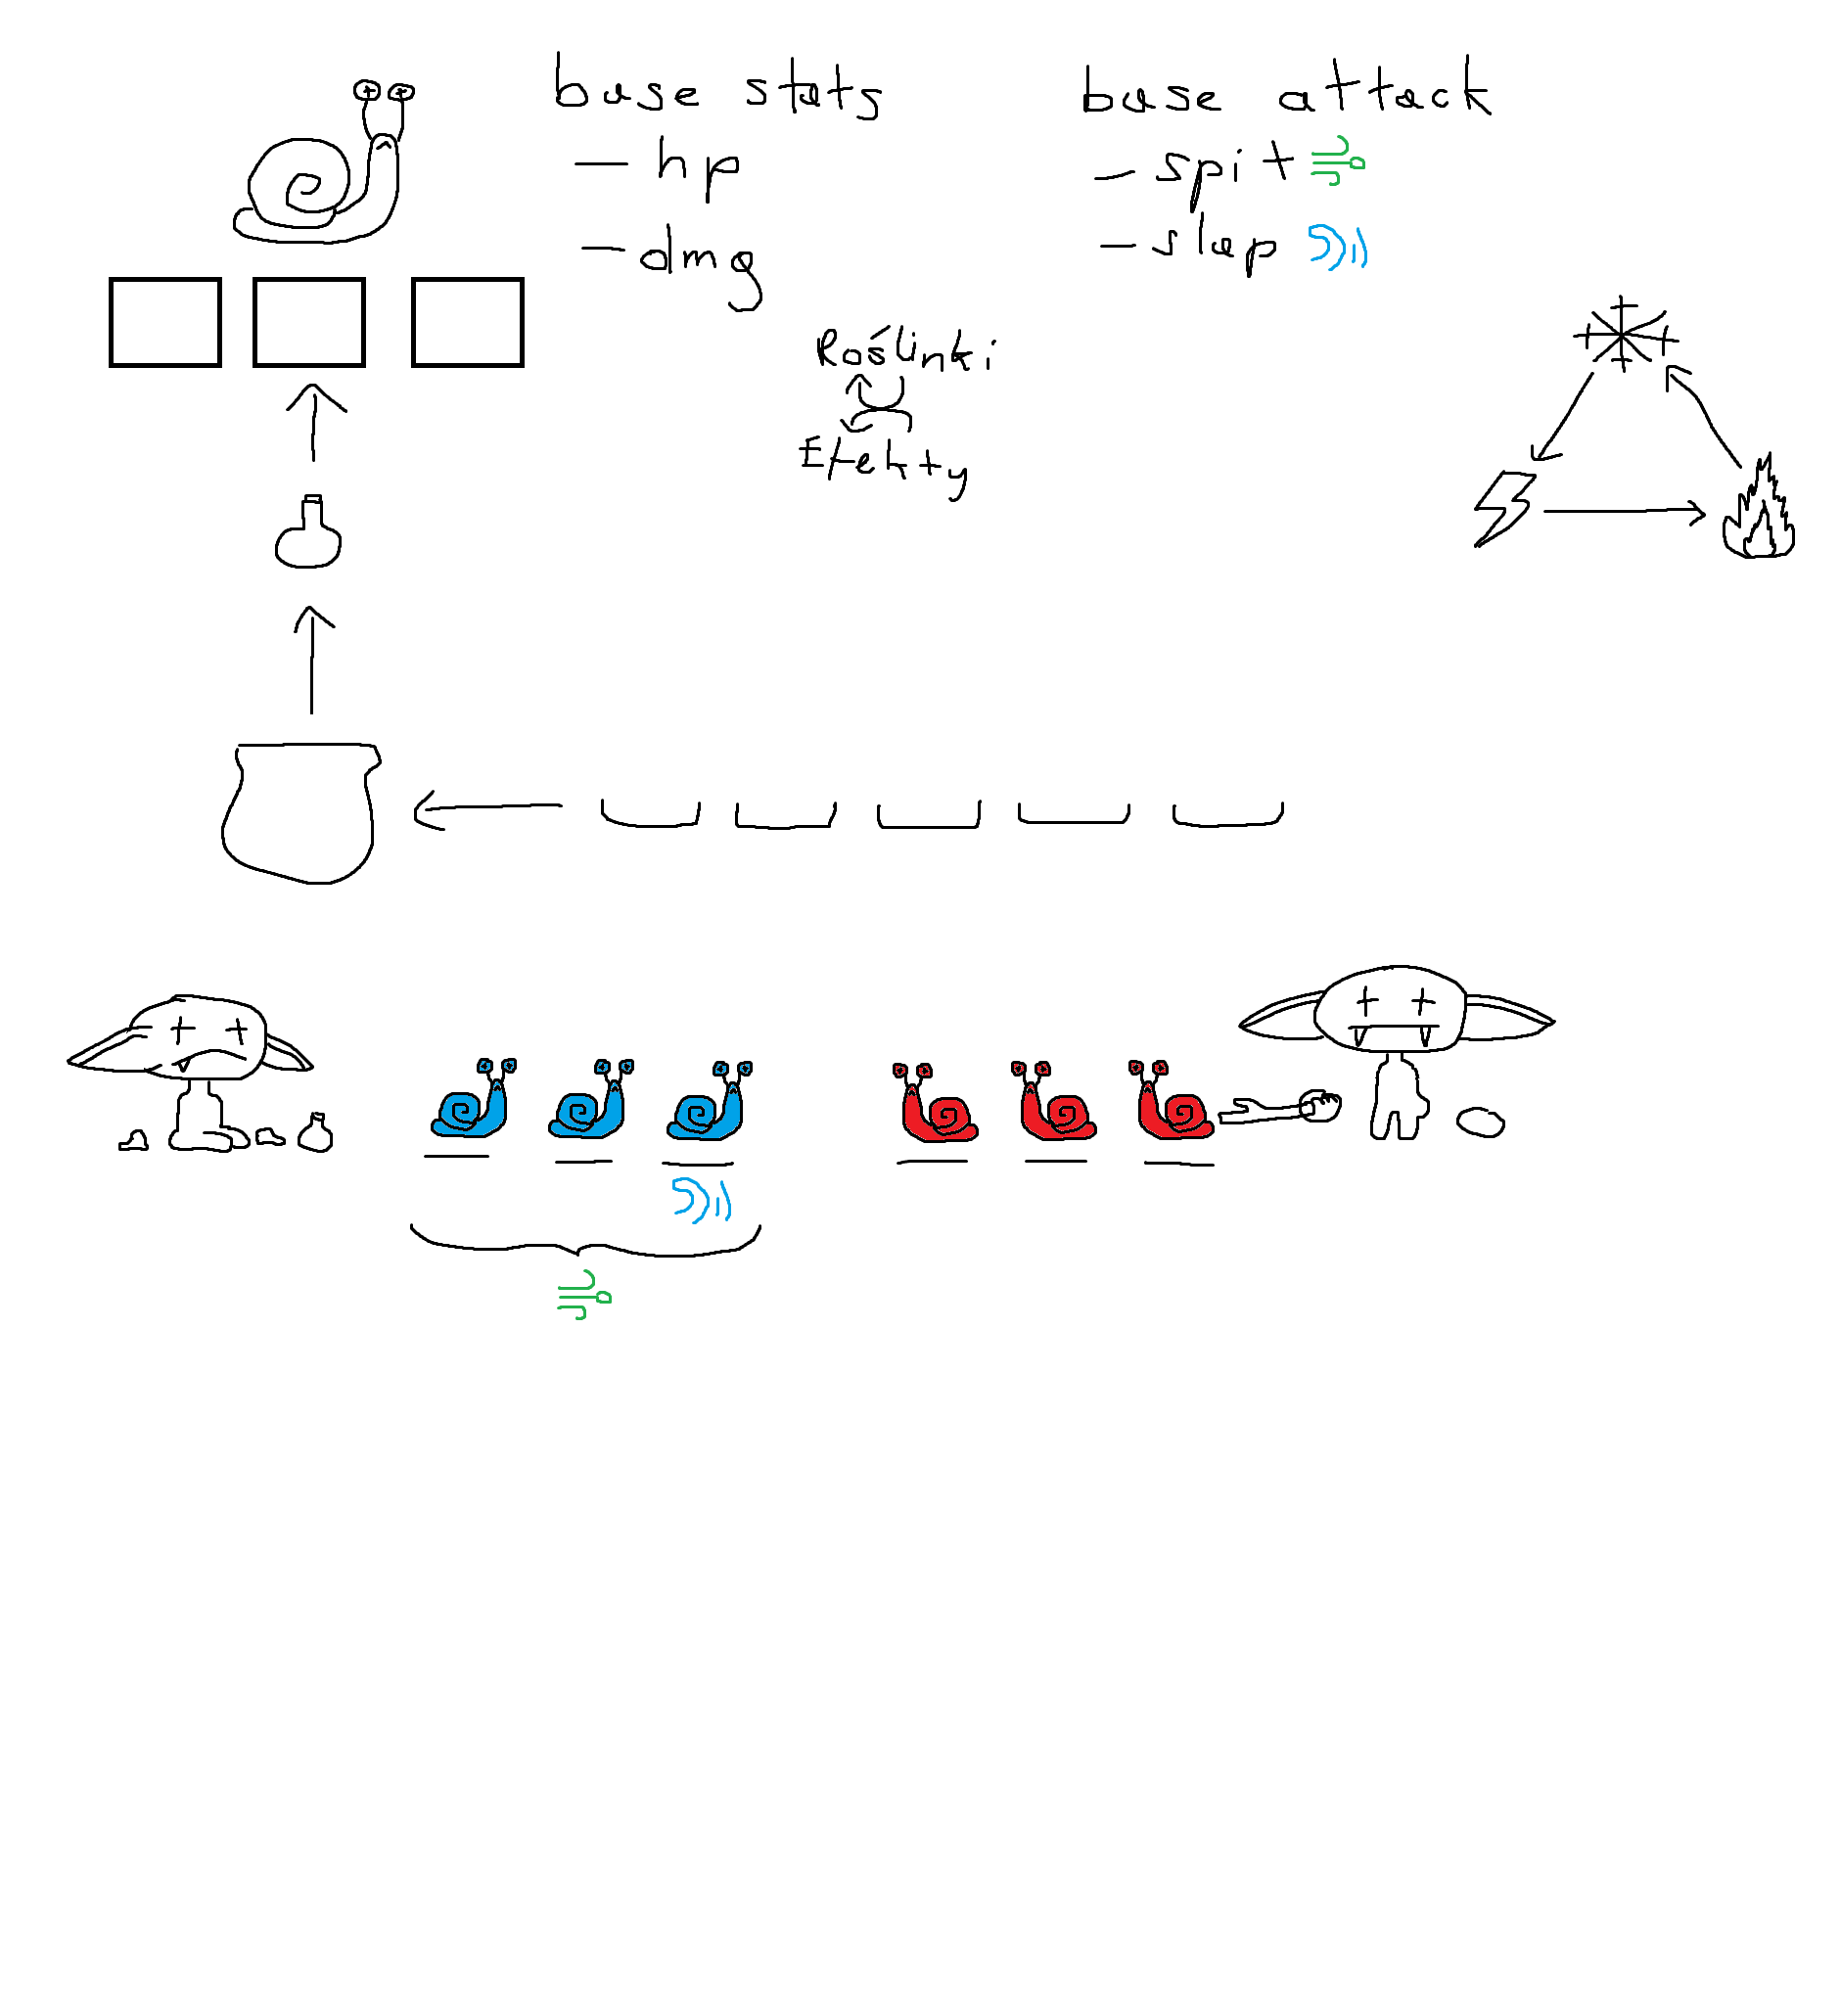 base stats
- hp
- dmg
base attack
- spit
- slap
Roślinki
Efekty